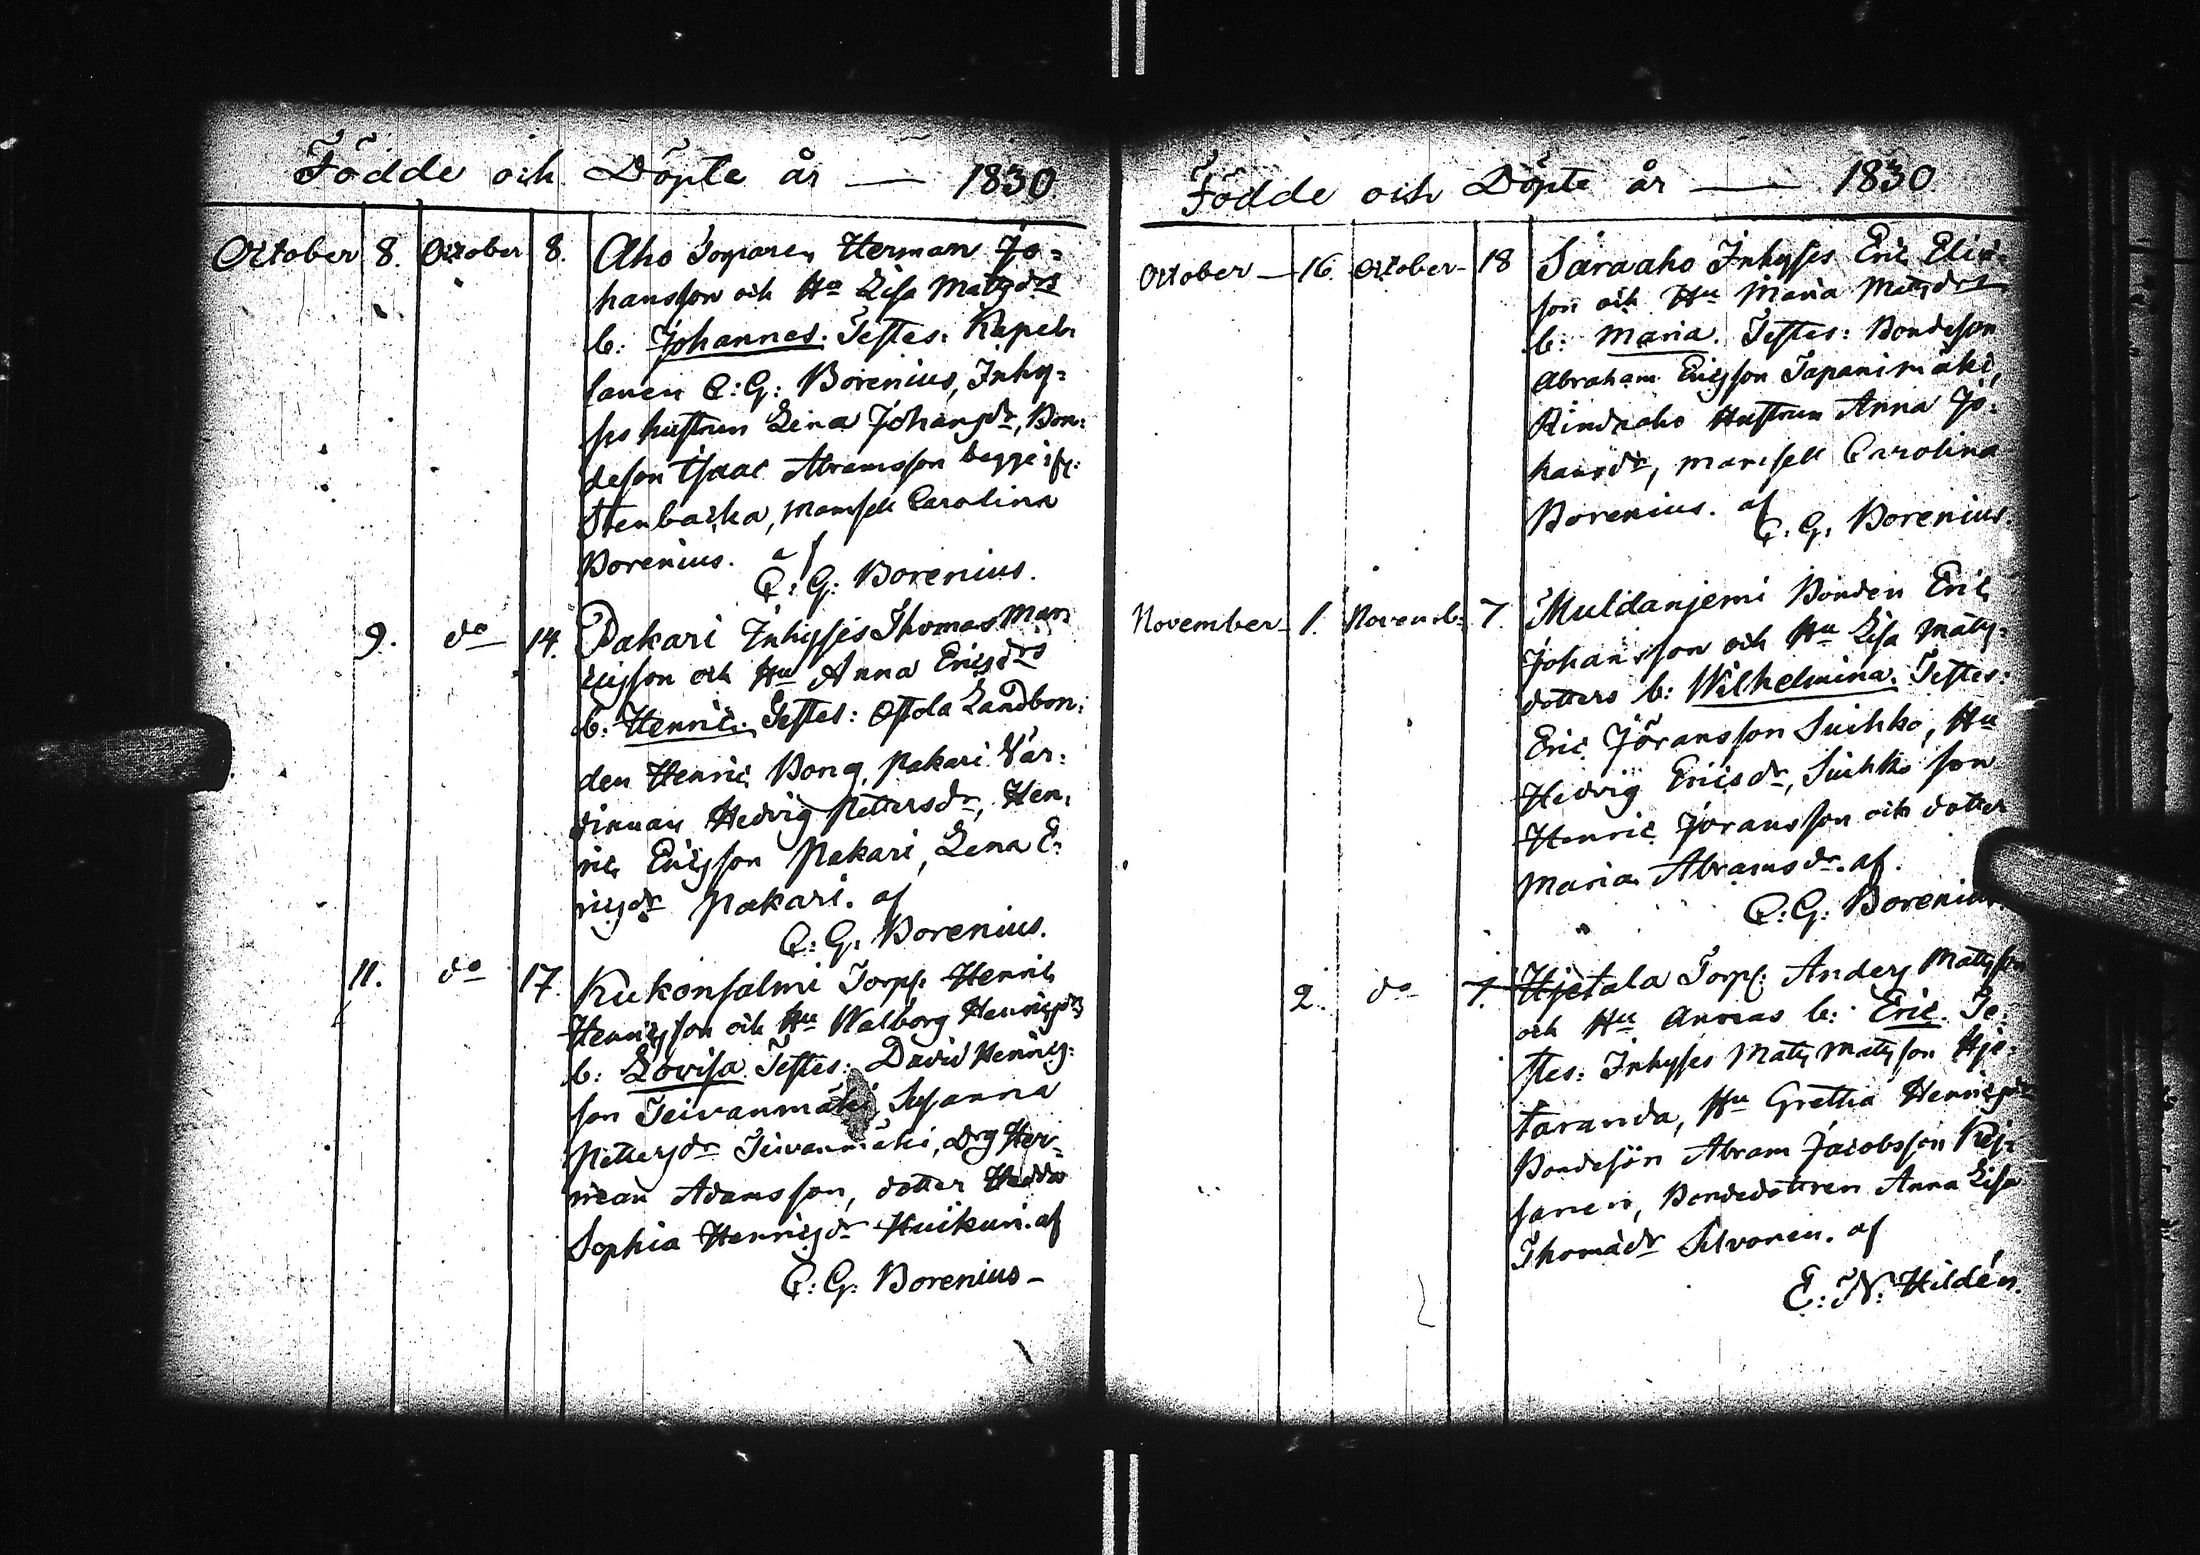 Födde och Döpte år — 1830.
October 8. October 8. Aho Torparen Herman Jo=
hansson och Hu Lisa Matsdrs
b: Johannes. Testes: Kapel-
lanen C: G: Borenius, Inhy=
ses hustrun Lena Johansdr, Bon:
deson Isaac Abramsson begge ifr:
Stenbacka, Mamsell Carolina
Borenius. af
C: G: Borenius.
9. do 14. Pakari Inhyses Thomas Man
ricsson och Hu Anna Ericsdrs
b: Henric. Testes: Ostola Landbon:
den Henric Bong, Pakari Vär:
dinnan Hedvig Pettersdr, Hen:
ric Ericsson Pakari, Lena E:
ricsdr Pakari. af
C: G: Borenius.
11. do 17. Kukonsalmi Torp: Henric
Henricsson och Hu Walborg Henricsdrs
b: Lovisa. Testes: David Henrics:
son Teivanmäki, Susanna
Pettersdr Teivanmäki, Drg Her=
man Adamsson, dotter Hedda
Sophia Henricsdr Huikuri. af
C: G: Borenius –
Födde och Döpte år — 1830.
October — 16. October - 18 Saraaho Inhyses Eric Elies
son och Hu Maria Matsdrs
b: Maria. Testes: Bondeson
Abraham Ericsson Tapanimäki,
Rindaaho Hustrun Anna Jo:
hansdr, Mamsell Carolina
Borenius. af
C. G. Borenius.
November 1. Novemb: 7. Muldanjemi Bonden Eric
Johansson och Hu Lisa Mats:
dotters b: Wilhelmina. Testes:
Eric Jöransson Suihko, Hu
Hedvig Ericsdr, Suihko son
Henric Jöransson och dotter
Maria Abramsdr. af.
C: G: Borenius
2. do 7. Hjetala Torp: Anders Matsson
och Hu Annas b: Eric. Te:
stes: Inhyses Mats Matsson Hje:
taranda, Hu Gretha Henricsdr
Bondesön Abram Jacobsson
Bondedottren Anna Lisa
Thomasdr Silvonen. af
E: N: Hildén.